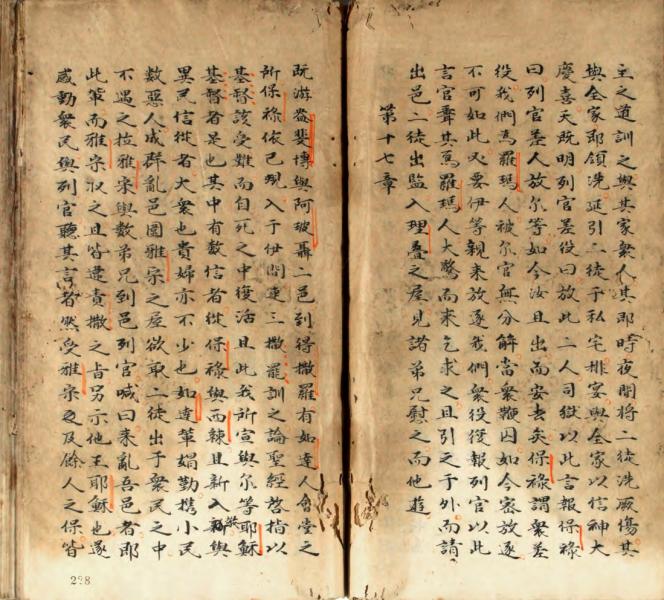 主之道訓之與其家衆人其即時夜間將二徒洗厥傷其
與全家即領洗延引二徒于私宅排宴與全家以信神大
慶喜天既明列官差役曰放此二人司獄以此言報保祿
曰列官差人放尔等如今汝且出而安去矣保祿謂衆差
役我們爲羅瑪人被尔官無分解當衆鞭囚如今密放逐
不可如此又要伊等親來放逐我們衆役復報列官以此
言官聞其爲羅瑪人大驚而來乞求之且引之于外而請
出邑二徒出監入理疊之屋見諸弟兄慰之而他遊
第十七章
既游盎斐博與阿玻聶二邑到得撒羅有如達人會堂之
所保祿依己規入于伊間連三撒罷訓之論聖經啓指以
基督該受難而自死之中復活且此我所宣與尔等耶穌
基督者是也其中有數信者從保祿與西辣且新入教與
異民信從者大衆也貴婦亦不少也如達軰媢勤攜小民
數惡人成群亂邑圍雅宗之屋欲取二徒出于衆民之中
不遇之拉雅宗與數弟兄到邑列官喊曰來亂吾邑者即
此軰而雅宗収之且皆違責撒之旨另示他王耶穌也遂
感動衆民與列官聽其言者然受雅宗及餘人之保皆
238